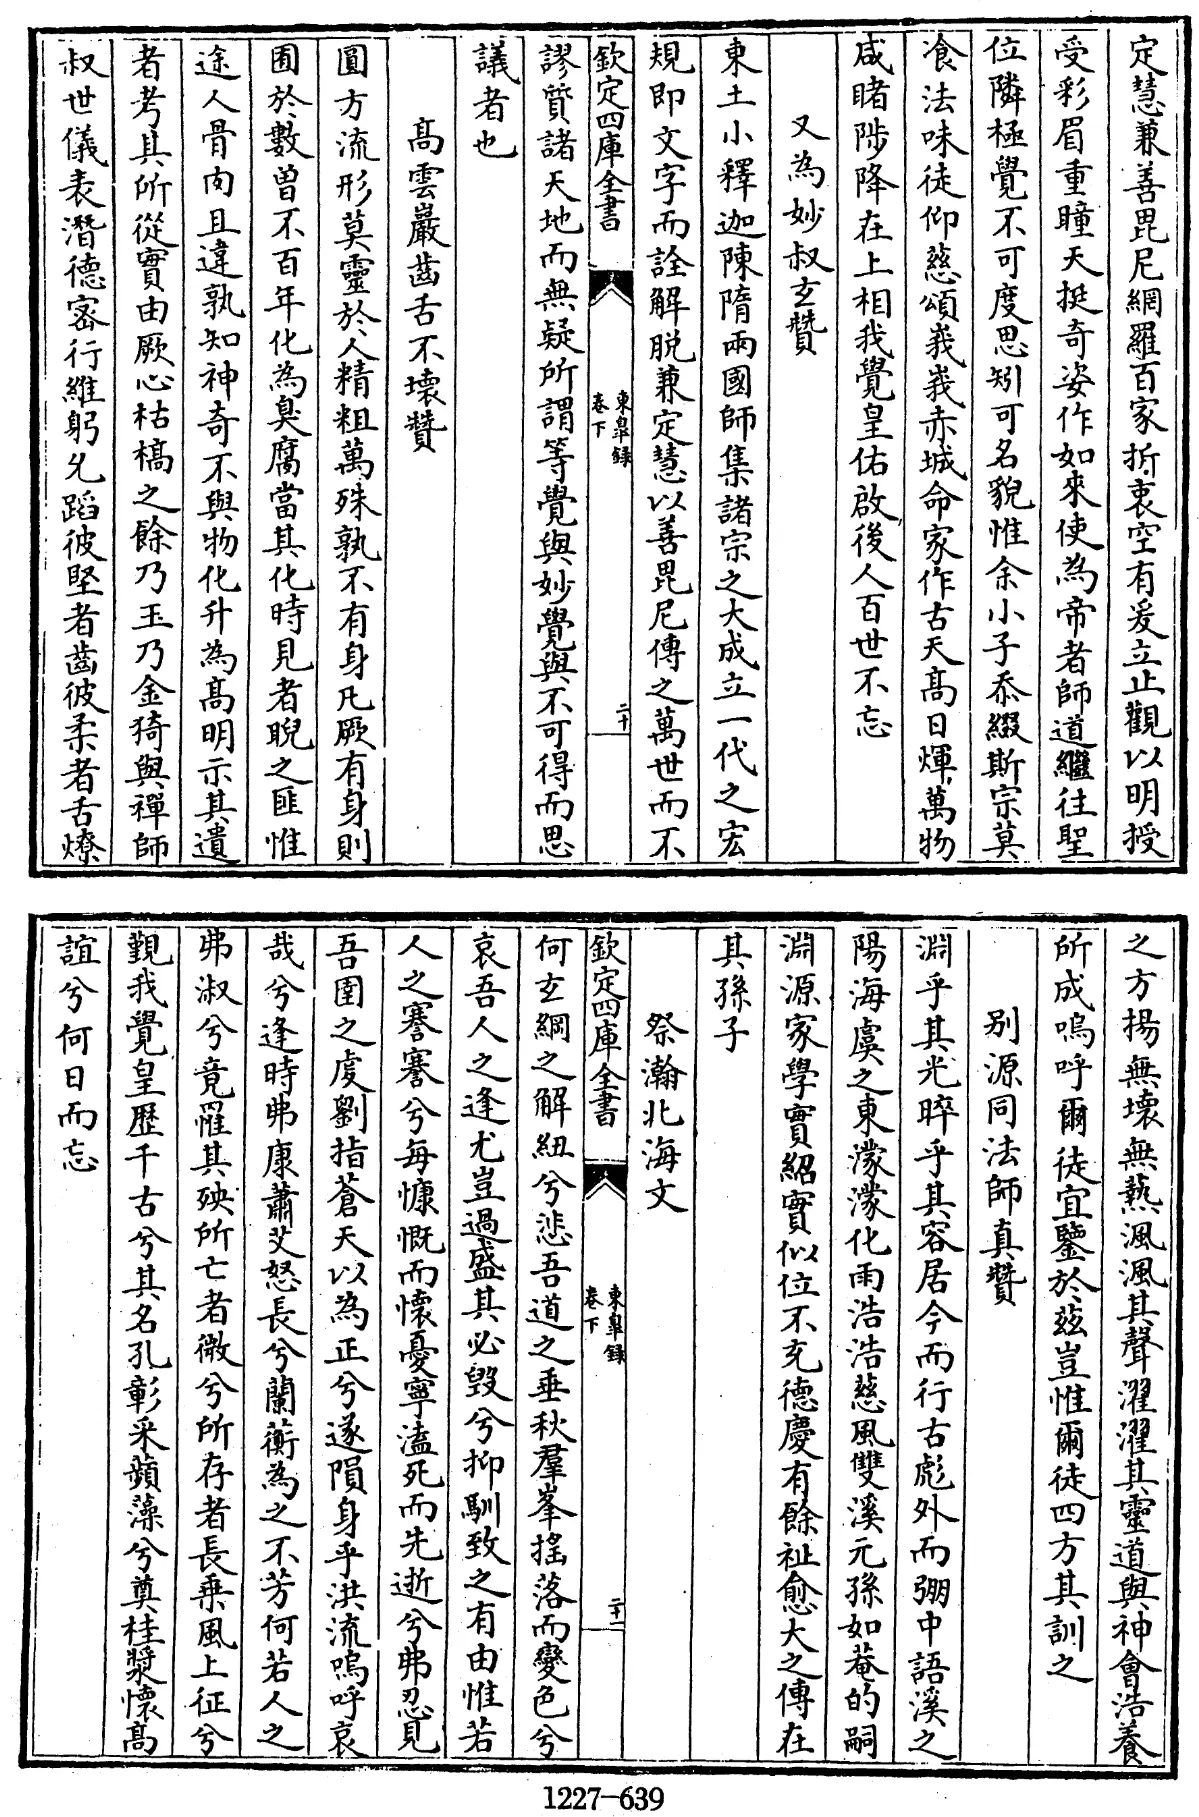 定慧兼善毘尼網羅百家折衷空有爰立止觀以明授
受彩眉重瞳天挺奇姿作如來使為帝者師道繼往聖
位隣極覺不可度思矧可名貌惟余小子忝綴斯宗莫
飡法味徒仰慈頌峩峩赤城命家作古天髙日煇萬物
咸睹陟降在上相我覺皇佑啟後人百世不忘
又為妙叔玄贊
東土小釋迦陳隋兩國師集諸宗之大成立一代之宏
規即文字而詮解脱兼定慧以善毘尼傳之萬世而不
欽定四庫全書
東臯録
卷下
二十
謬質諸天地而無疑所謂等覺與妙覺與不可得而思
議者也
髙雲巖齒舌不壞贊
圓方流形莫靈於人精粗萬殊孰不有身凡厥有身則
囿於數曽不百年化為臭腐當其化時見者睨之匪惟
途人骨肉且違孰知神奇不與物化升為髙明示其遺
者考其所從實由厥心枯槁之餘乃玉乃金猗與禪師
叔世儀表潛德宻行維躬允蹈彼堅者齒彼柔者舌燎
之方揚無壞無爇渢渢其聲濯濯其靈道與神會浩養
所成嗚呼爾徒宜鑒於兹豈惟爾徒四方其訓之
别源同法師真贊
淵乎其光睟乎其容居今而行古彪外而弸中語溪之
陽海虞之東濛濛化雨浩浩慈風雙溪元孫如菴的嗣
淵源家學實紹實似位不充德慶有餘祉愈大之傳在
其孫子
祭瀚北海文
欽定四庫全書
東臯録
卷下
二十一
何玄綱之解紐兮悲吾道之垂秋羣峯揺落而變色兮
哀吾人之逢尤豈過盛其必毁兮抑馴致之有由惟若
人之謇謇兮每慷慨而懷憂寧溘死而先逝兮弗忍見
吾圉之虔劉指蒼天以為正兮遂隕身乎洪流嗚呼哀
哉兮逢時弗康蕭艾怒長兮蘭蘅為之不芳何若人之
弗淑兮竟罹其殃所亡者微兮所存者長乘風上征兮
覲我覺皇歴千古兮其名孔彰采蘋藻兮奠桂漿懷髙
誼兮何日而忘
1227-639